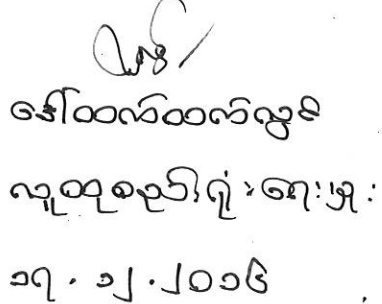 ဒေါ်ထက်ထက်လွင်
လူထုစည်းရုံးရေးမှူး
၁၇.၁၂.၂၀၁၆